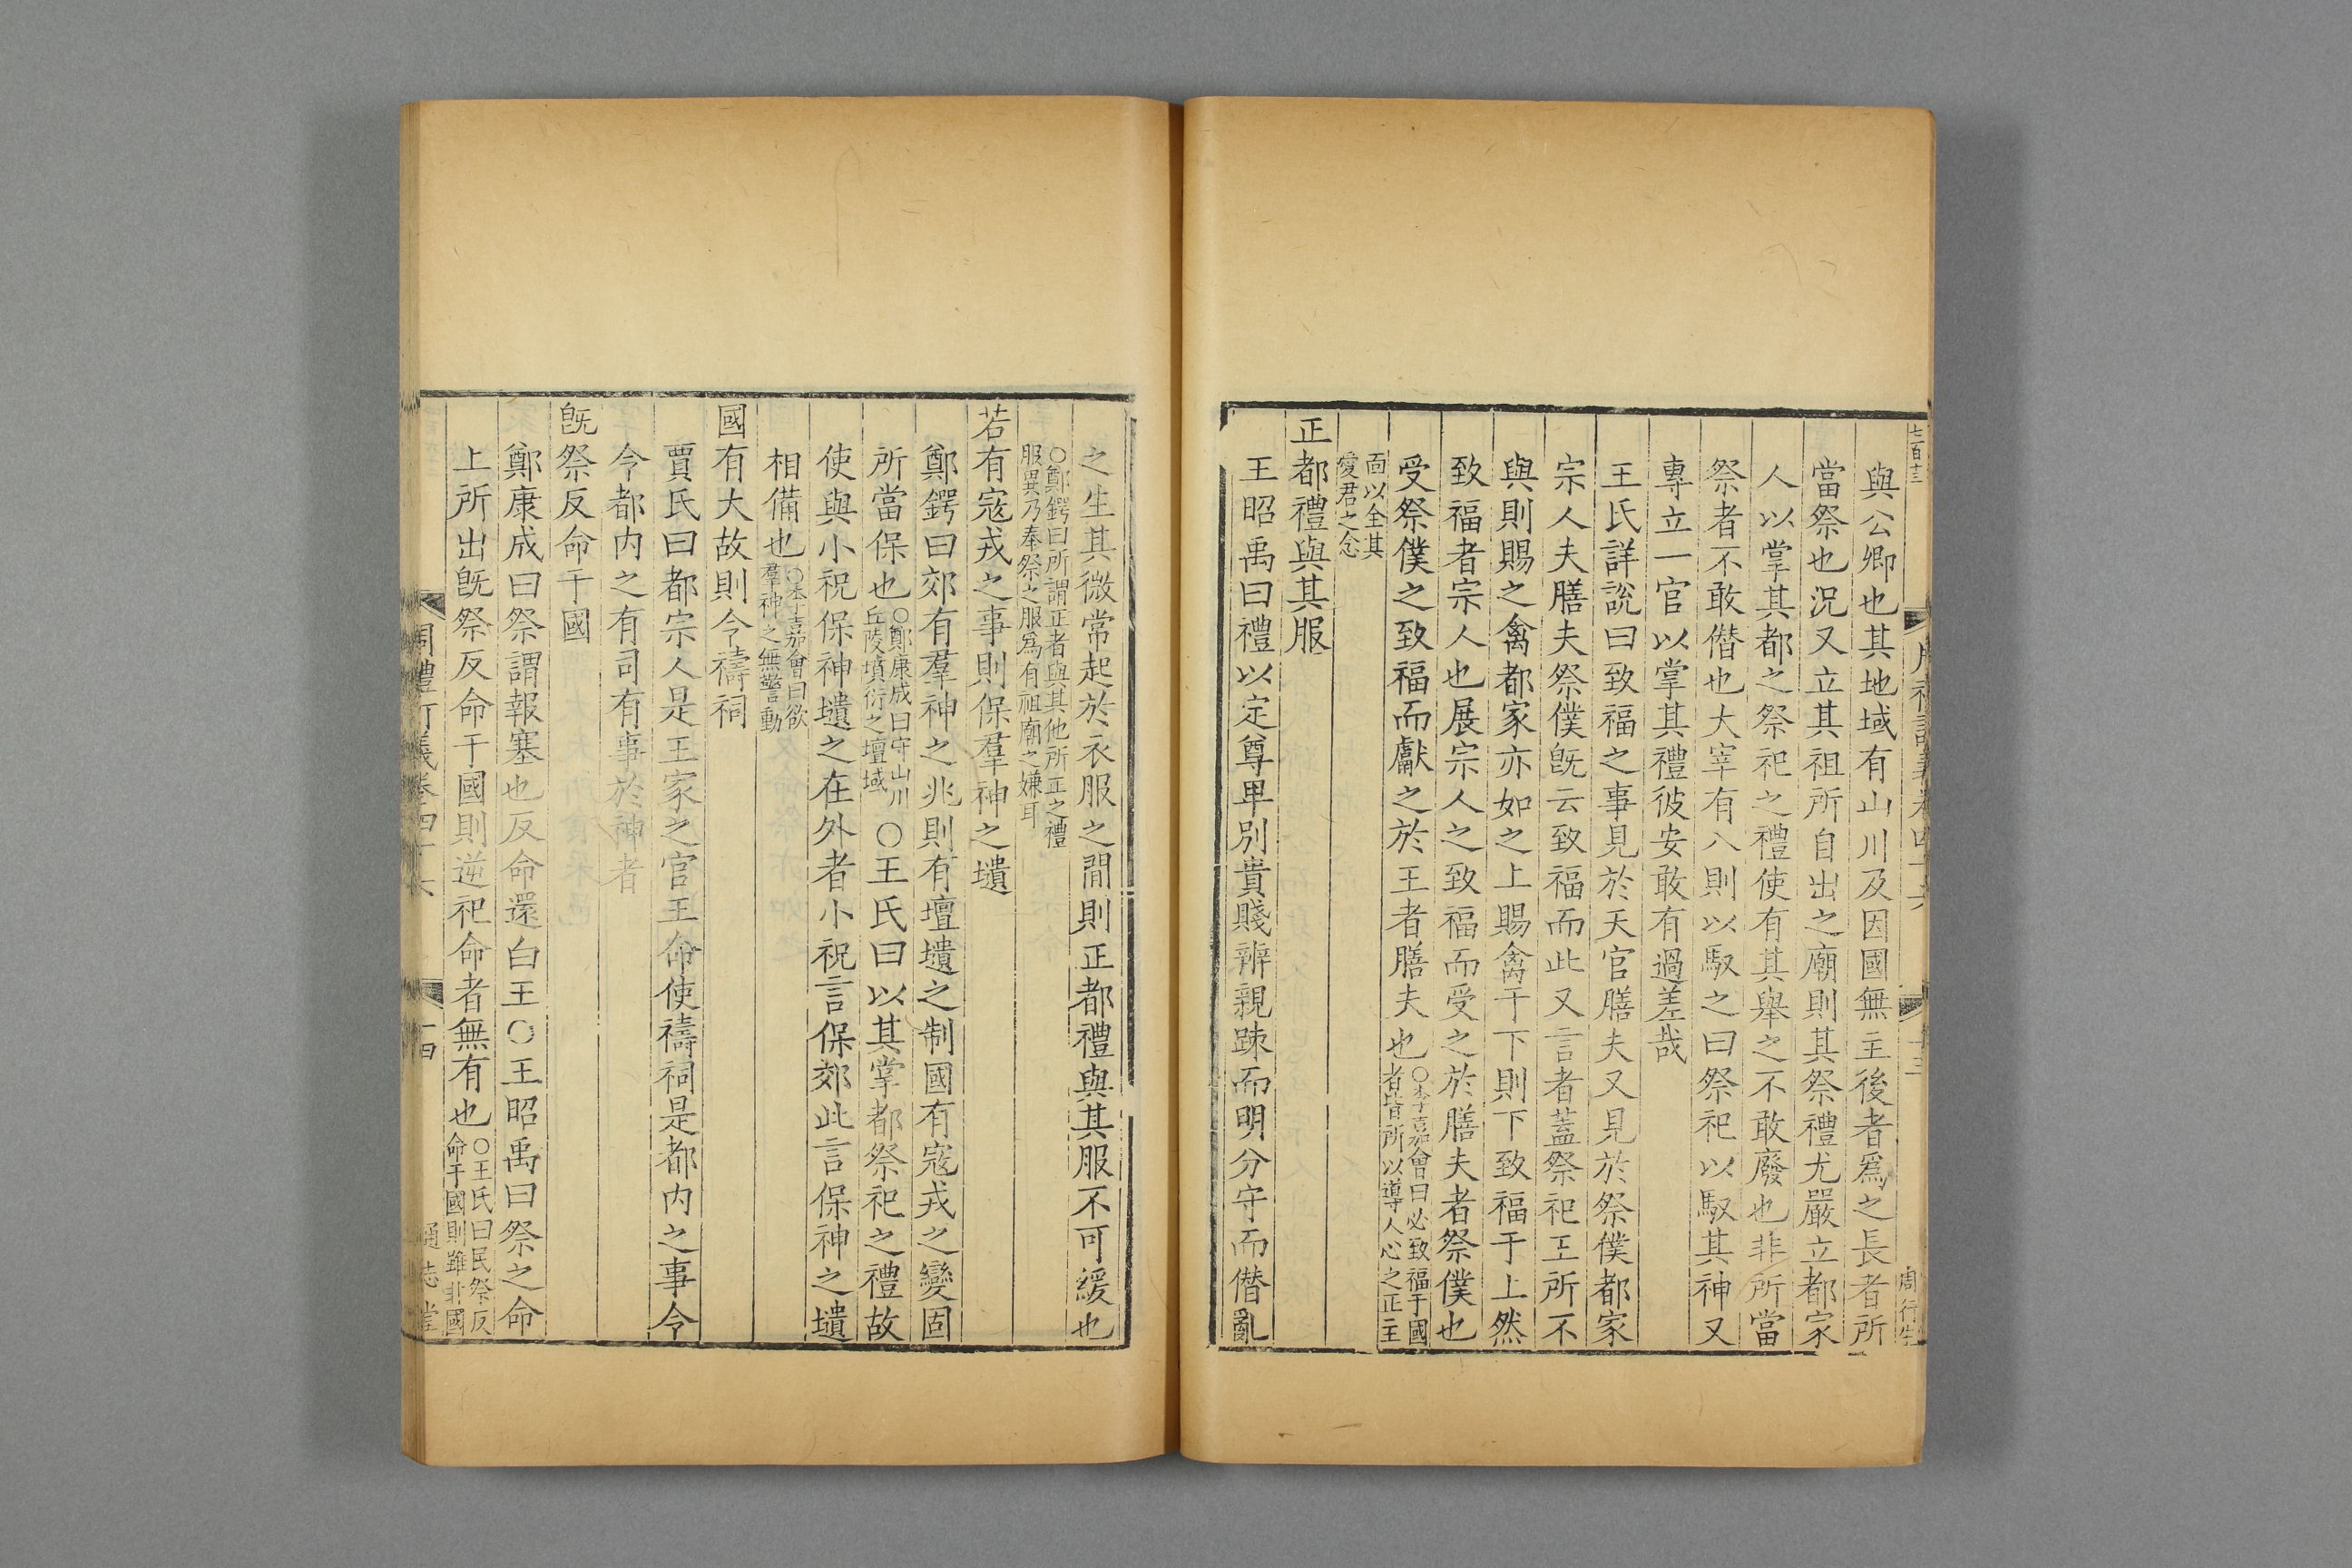 七百十三
周行生
與公卿也其地域有山川及因國無主後者爲之長者所
當祭也況又立其祖所自出之廟則其祭禮尤嚴立都家
人以掌其都之祭祀之禮使有其舉之不敢廢也非所當
祭者不敢僭也大宰有八則以馭之曰祭祀以馭其神又
專立一官以掌其禮彼安敢有過差哉
王氏詳說曰致福之事見於天官膳夫又見於祭僕都家
宗人夫膳夫祭僕旣云致福而此又言者蓋祭祀王所不
與則賜之禽都家亦如之上賜禽于下則下致福于上然
致福者宗人也展宗人之致福而受之於膳夫者祭僕也
受祭僕之致福而獻之於王者膳夫也
○李嘉會曰必致福于國
者皆所以導人心之正主
面以全其
愛君之念
正都禮與其服
王昭禹曰禮以定尊卑別貴賤辨親踈而明分守而僭亂
之生其微常起於衣服之閒則正都禮與其服不可緩也
○鄭鍔曰所謂正者與其他所正之禮
服異乃奉祭之服爲有祖廟之嫌耳
若有寇戎之事則保羣神之壝
鄭鍔曰郊有羣神之兆則有壇壝之制國有寇戎之變固
所當保也
○鄭康成曰守山川
丘陵墳衍之壇域
○王氏曰以其掌都祭祀之禮故
使與小祝保神壝之在外者小祝言保郊此言保神之壝
相備也
○李嘉會曰欲
羣神之無警動
國有大故則令禱祠
賈氏曰都宗人是王家之官王命使禱祠是都內之事令
令都內之有司有事於神者
旣祭反命于國
鄭康成曰祭謂報塞也反命還白王○王昭禹曰祭之命
上所出旣祭反命于國則逆祀命者無有也
○王氏曰民祭反
命于國則雖非國
周禮訂義卷四十六
十四
通志堂